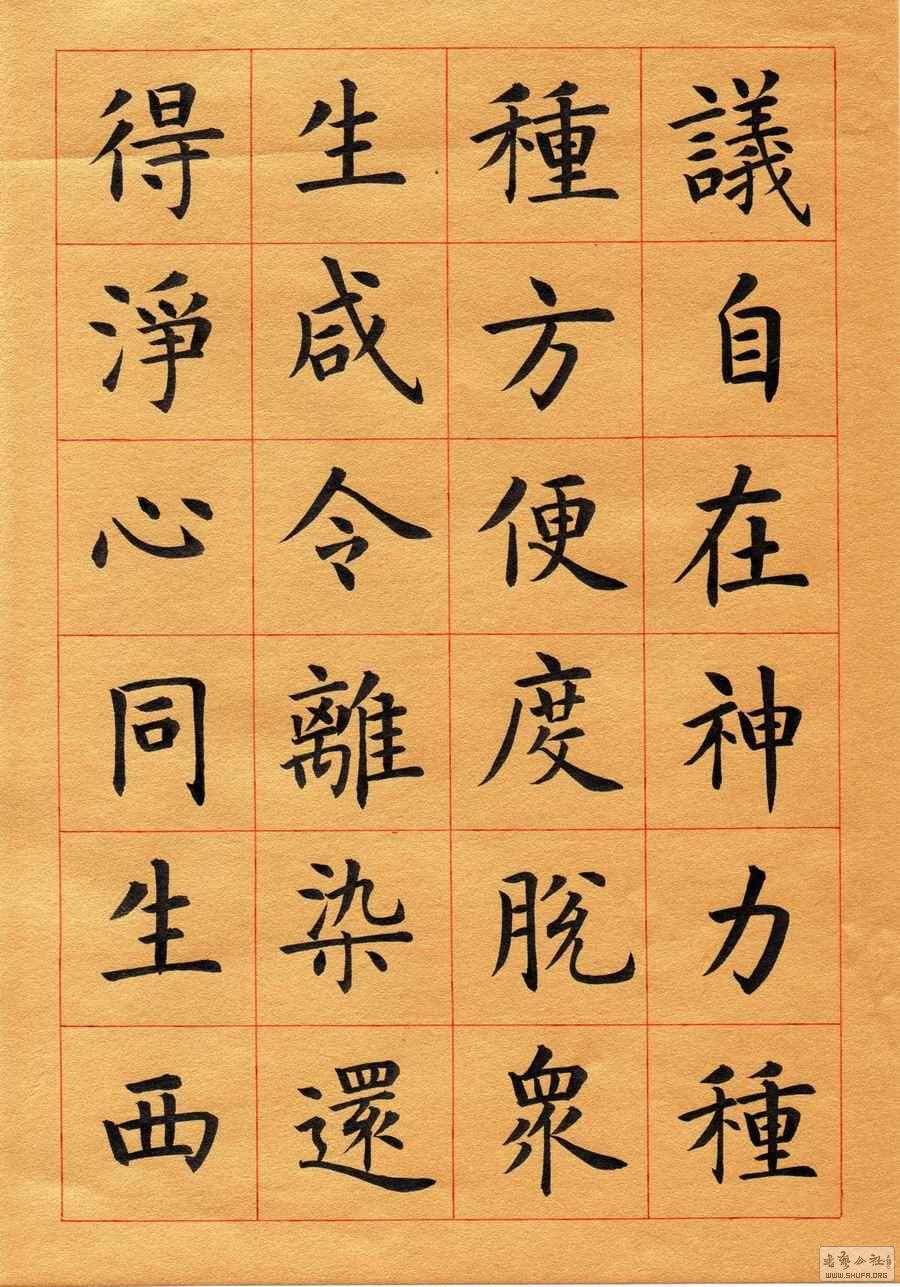 議自在神力種
種方便度脫眾
生咸令離染還
得淨心同生西
WWW.SHUFA.ORG